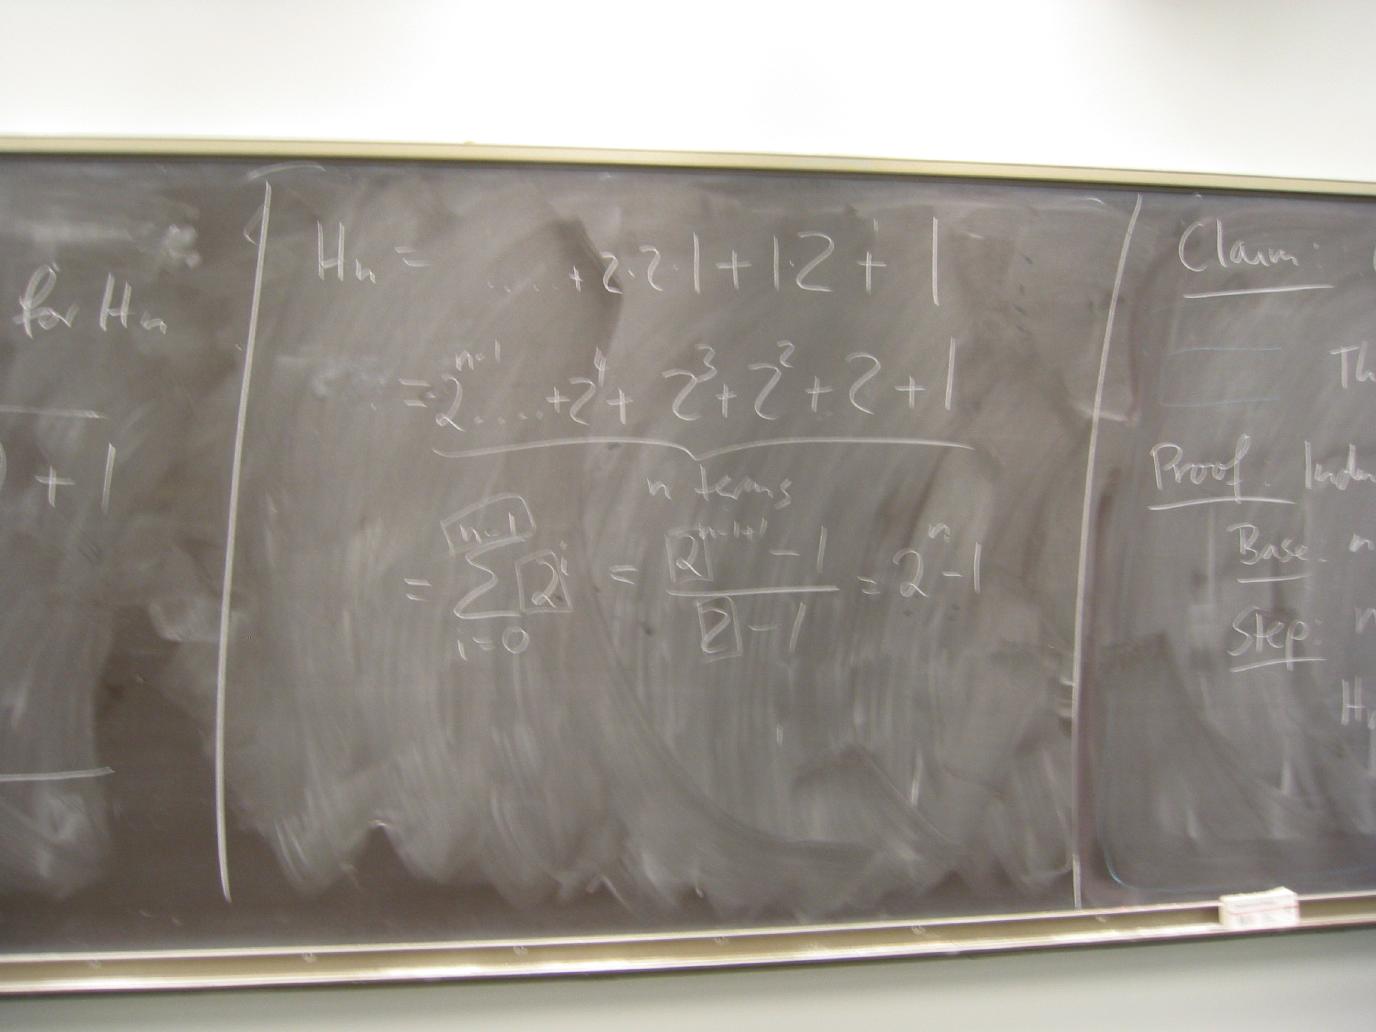 for Hn
+ 1
Hn = ..... + 2·2·1 + 1·2 + 1
= 2^{n-1} .... + 2^4 + 2^3 + 2^2 + 2 + 1
n terms
= \sum_{i=0}^{n-1} 2^i = \frac{2^{n-1+1} - 1}{2 - 1} = 2^n - 1
Claim:
Th
Proof: Indu
Base: n
Step: n
H